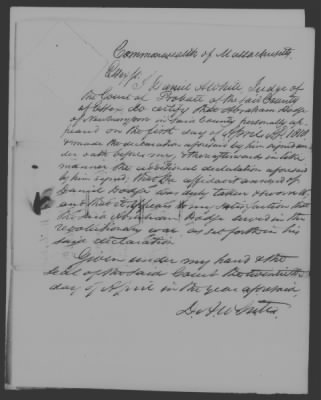 Commonwealth of Massachusetts
Essex ss. I Daniel A White Judge of
the Court of Probate of the said County
of Essex do certify that Abraham Dodge
of Newburyport in said County personally ap
peared on the first day of April AD 1818
& made the declaration aforesaid by him signed un
der oath before me, & thereafterwards in like
manner the additional declaration aforesaid
by him signed, that the affidavit annexed of
Daniel Dodge was duly taken & sworn to,
and that it appears to my satisfaction that
the said Abraham Dodge served in the
revolutionary war as set forth in his
said declaration
Given under my hand & the
seal of the said Court the twentieth
day of April in the year aforesaid,
D. A. White